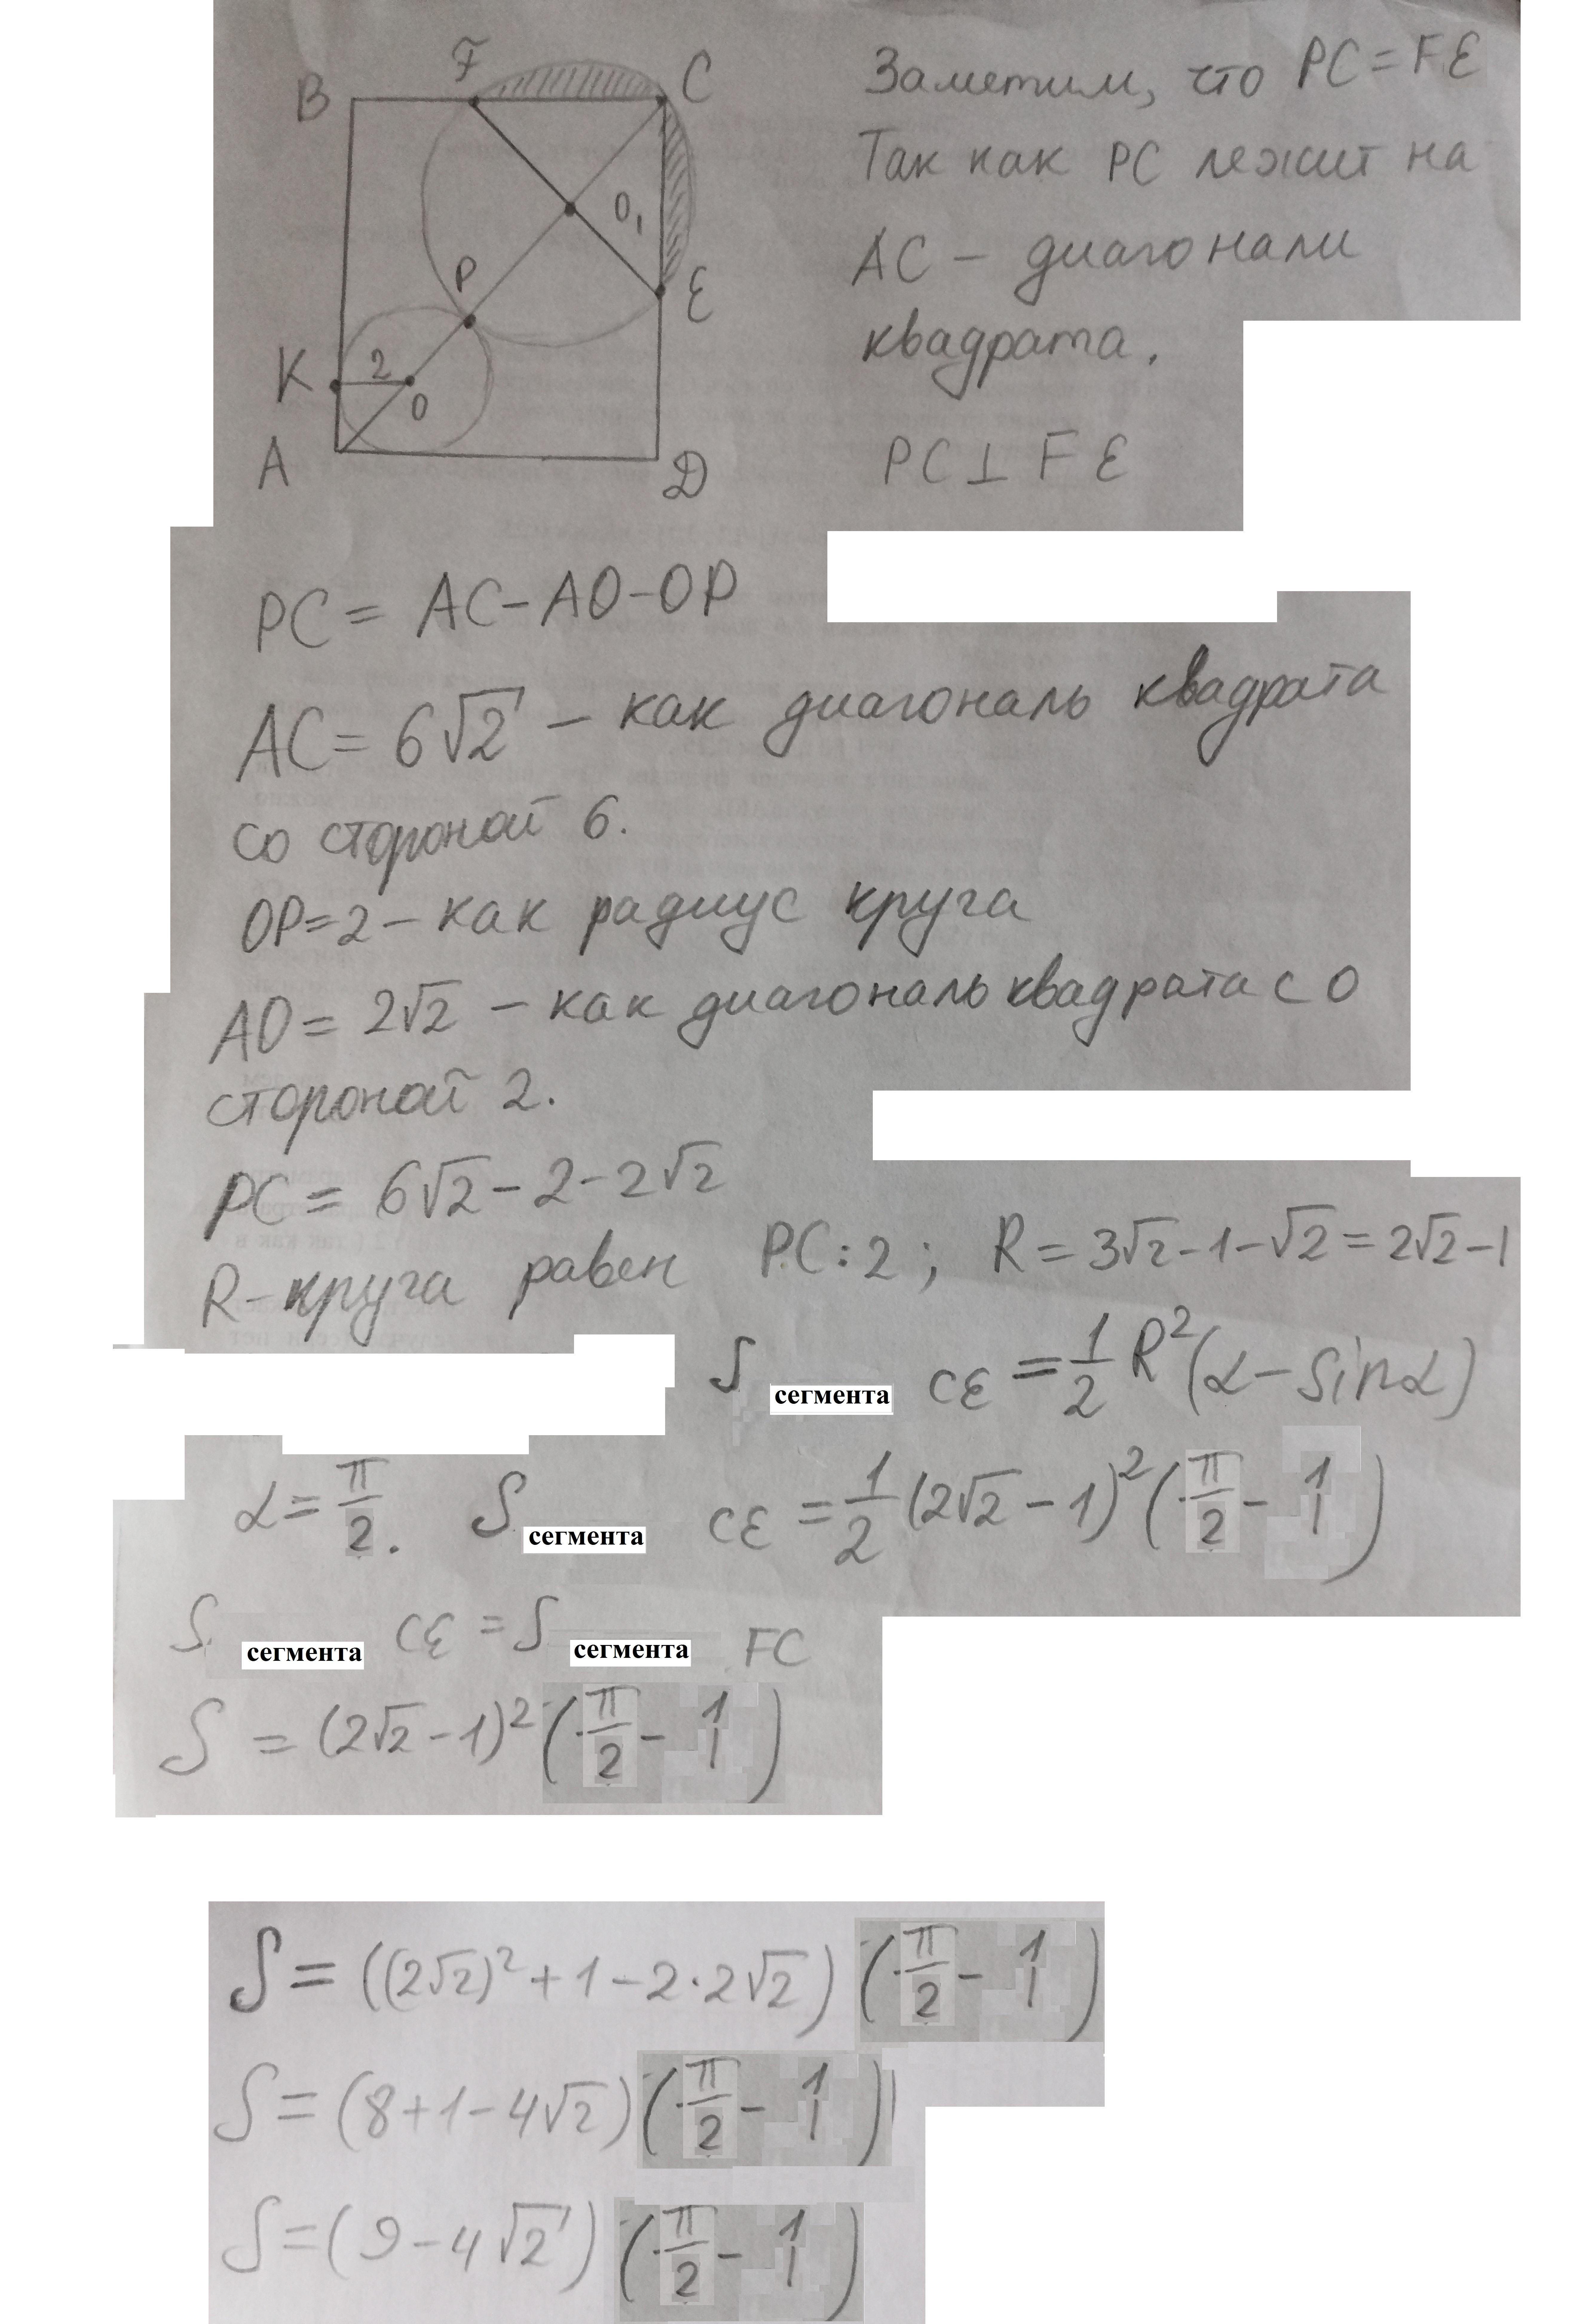 F
B
C
O₁
P
E
K
2
O
A
D
Заметим, что PC = FE
Так как PC лежит на
AC – диагонали
квадрата.
PC ⊥ FE
PC = AC – AO – OP
AC = 6√2 – как диагональ квадрата
со стороной 6.
OP = 2 – как радиус круга
AO = 2√2 – как диагональ квадрата с о
стороной 2.
PC = 6√2 – 2 – 2√2
R – круга равен PC : 2 ; R = 3√2 – 1 – √2 = 2√2 – 1
S сегмента CE = 1/2 R² (α – sin α)
α = π/2. S сегмента CE = 1/2 (2√2 – 1)² (π/2 – 1)
S сегмента CE = S сегмента FC
S = (2√2 – 1)² (π/2 – 1)
S = ((2√2)² + 1 – 2 · 2√2) (π/2 – 1)
S = (8 + 1 – 4√2) (π/2 – 1)
S = (9 – 4√2) (π/2 – 1)